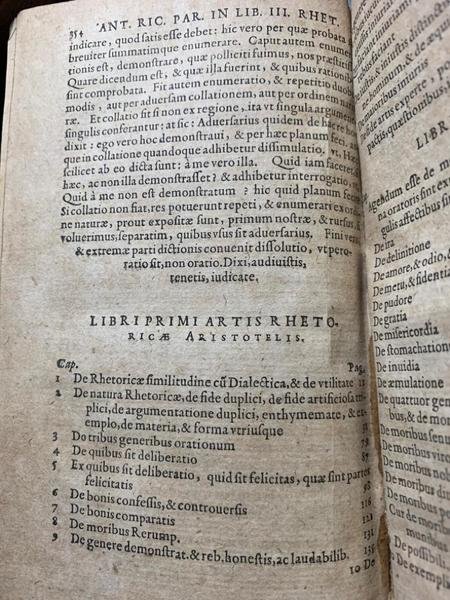 354 ANT. RIC. PAR. IN LIB. III. RHET.
indicare, quod satis esse debet: hic vero per quæ probata
breuiter summatimque enumerare. Caput autem enume
tionis est, demonstrare, quæ polliciti fuimus, nos præstitisse
Quare dicendum est, & quæ illa fuerint, & quibus rationibus
sint comprobata. Fit autem enumeratio, & repetitio duobus
modis, aut per aduersam collationem, aut per ordinem natu
ræ. Et collatio sit si non ex regione, ita vt singula argumenta
singulis conferantur: at sic: Aduersarius quidem de hac re hoc
dixit: ego vero hoc demonstraui, & per hæc planum feci.
que in collatione quandoque adhibetur dissimulatio, vt, Hæc
scilicet ab eo dicta sunt: à me vero illa. Quid iam faceret,
hæc, ac non illa demonstrasset? & adhibetur interrogatio, vt
Quid à me non est demonstratum? hic quid planum fecit?
Si collatio non fiat, res potuerunt repeti, & enumerari ex ordi
ne naturæ, prout expositæ sunt, primum nostræ, & rursus, si
voluerimus, separatim, quibus vsus sit aduersarius. Fini vero,
& extremæ parti dictionis conuenit dissolutio, vt pero-
ratio sit, non oratio. Dixi, audiuistis,
tenetis, iudicate.
LIBRI PRIMI ARTIS RHETO-
RICÆ ARISTOTELIS.
Cap. Pag.
1 De Rhetoricæ similitudine cũ Dialectica, & de vtilitate
2 De natura Rhetoricæ, de fide duplici, de fide artificiosa tri-
plici, de argumentatione duplici, enthymemate, & ex-
emplo, de materia, & forma vtriusque
3 Do tribus generibus orationum 79
4 De quibus sit deliberatio 87
5 Ex quibus sit deliberatio, quid sit felicitas, quæ sint partes
felicitatis
6 De bonis confessis, & controuersis 116
7 De bonis comparatis 121
8 De moribus Rerump. 131
9 De genere demonstrat. & reb. honestis, ac laudabilib. 139
10 De
LIBRI
Agendum esse de
De ira
De delinitione
De amore, & odio, &
De metu, & fidentia
De pudore
De gratia
De misericordia
De stomachatione
De inuidia
De æmulatione
De quattuor gen
bus, & de mo
De moribus senu
De moribus viro
De moribus nob
De moribus diui
De moribus po
Cur de moribus
De possibili
De exempli